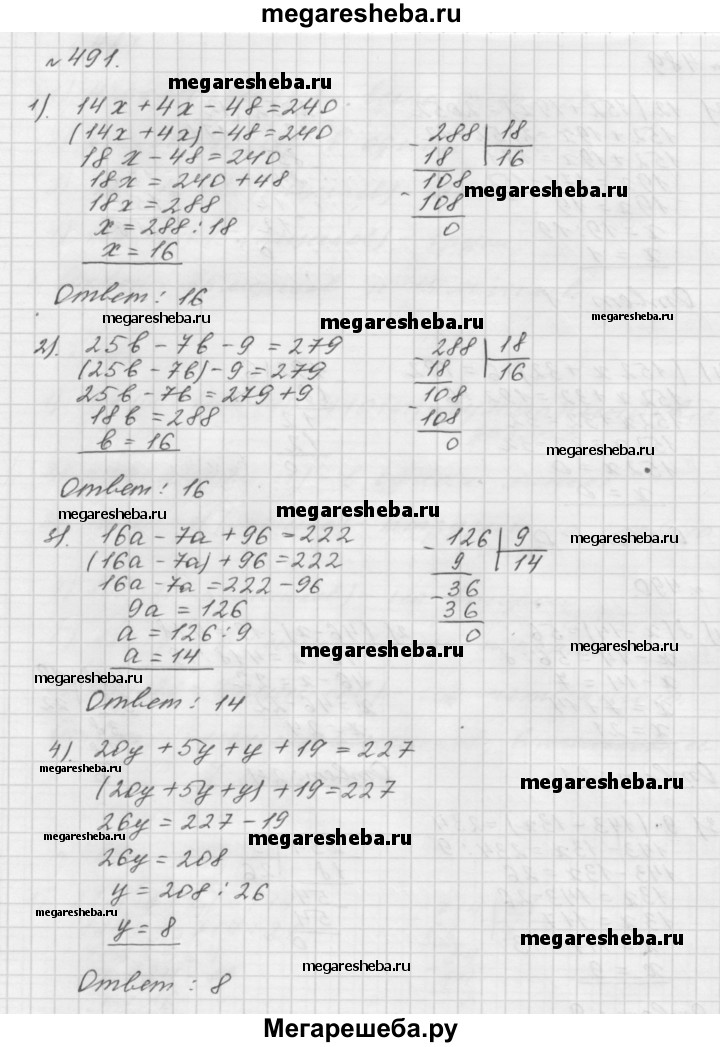 megaresheba.ru
№491.
megaresheba.ru
1). 14x + 4x - 48 = 240
(14x + 4x) - 48 = 240
18x - 48 = 240
18x = 240 + 48
18x = 288
x = 288 : 18
x = 16
- 288 | 18
18 | 16
- 108
108
0
megaresheba.ru
Ответ: 16
megaresheba.ru
megaresheba.ru
megaresheba.ru
2). 25в - 7в - 9 = 279
(25в - 7в) - 9 = 279
25в - 7в = 279 + 9
18в = 288
в = 16
- 288 | 18
18 | 16
- 108
108
0
megaresheba.ru
Ответ: 16
megaresheba.ru
megaresheba.ru
3). 16а - 7а + 96 = 222
(16а - 7а) + 96 = 222
16а - 7а = 222 - 96
9а = 126
а = 126 : 9
а = 14
- 126 | 9
9 | 14
- 36
36
0
megaresheba.ru
megaresheba.ru
megaresheba.ru
megaresheba.ru
megaresheba.ru
Ответ: 14
4). 20y + 5y + y + 19 = 227
megaresheba.ru
megaresheba.ru
(20y + 5y + y) + 19 = 227
26y = 227 - 19
megaresheba.ru
megaresheba.ru
26y = 208
y = 208 : 26
megaresheba.ru
y = 8
megaresheba.ru
megaresheba.ru
Ответ: 8
Мегарешеба.ру